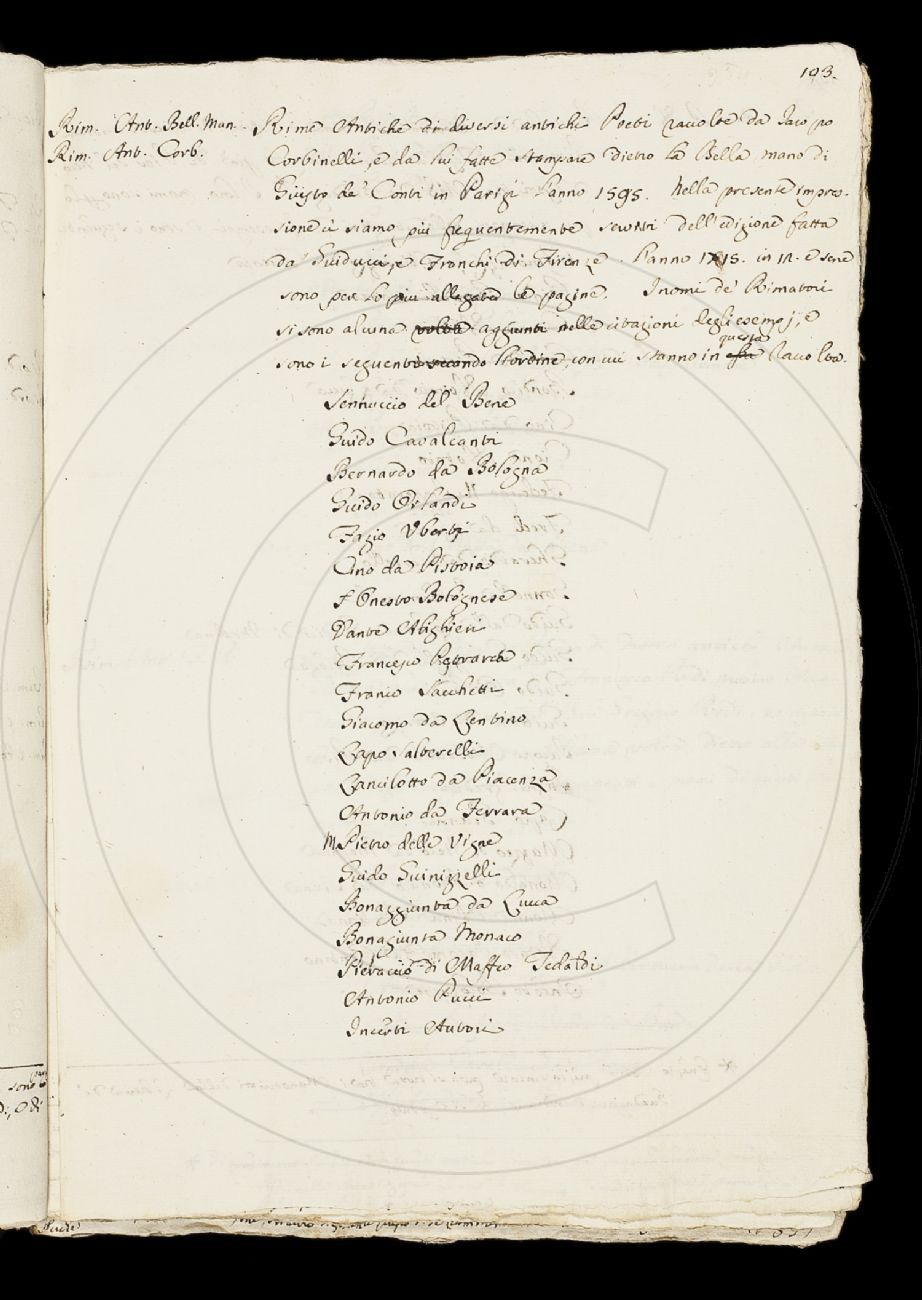 193.
Rim. Ant. Bell. Man.
Rim. Ant. Corb.
Rime Antiche di diversi antichi Poeti raccolte da Jacopo
Corbinelli, e da lui fatte stampare dietro la Bella mano di
Giusto de' Conti in Parigi l'anno 1595. Nella presente impres-
sione ci siamo più frequentemente serviti dell'edizione fatta
da Guiducci, e Franchi di Firenze l'anno 1715. in 12. e se ne
sono per lo più allegate le pagine. I nomi de' Rimatori
si sono alcuna volta aggiunti nelle citazioni degli esempj, e
questa
sono i seguenti secondo l'ordine, con cui stanno in essa Raccolta.
Sennuccio del Bene
Guido Cavalcanti
Bernardo da Bologna
Guido Orlandi
Fazio Uberti
Cino da Pistoia
Onesto Bolognese
Dante Alighieri
Francesco Petrarca
Franco Sacchetti
Giacomo da Lentino
Lapo Salterelli
Lancilotto da Piacenza
Antonio da Ferrara
M. Pietro delle Vigne
Guido Guinizzelli
Bonaggiunta da Lucca
Bonagiunta Monaco
Pieraccio di Maffeo Tedaldi
Antonio Pucci
Incerti Autori
sono